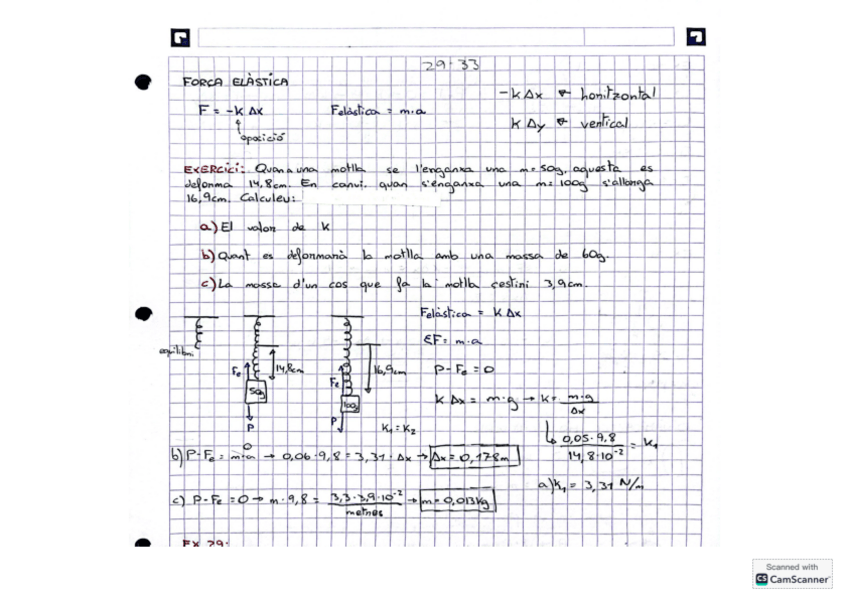 29-33
FORÇA ELÀSTICA
F = -k Δx
oposició
Felàstica = m·a
-k Δx horitzontal
k Δy vertical
EXERCICI: Quan a una motlla se l'enganxa una m= 50g, aquesta es
deforma 14,8cm. En canvi, quan s'enganxa una m= 100g s'allonga
16,9cm. Calculeu:
a) El valor de k
b) Quant es deformarà la motlla amb una massa de 60g.
c) La massa d'un cos que fa la motlla s'estiri 3,9cm.
equilibri
Fe
14,8cm
50g
P
Fe
16,9cm
100g
P
K₁ = K₂
Felàstica = k Δx
ΣF = m·a
P - Fe = 0
k Δx = m·g → k = m·g / Δx
0,05·9,8 / 14,8·10⁻² = k₁
a) k₁ = 3,31 N/m
b) P - Fe = m·a 0 → 0,06·9,8 = 3,31·Δx → Δx = 0,178m
c) P - Fe = 0 → m·9,8 = 3,3·3,9·10⁻² → m = 0,013kg
metres
EX 29:
Scanned with
CS CamScanner